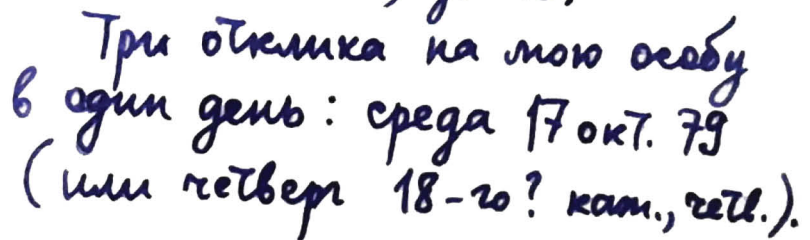 Три отклика на мою особу
в один день: среда 17 окт. 79
(или четверг 18-го? каж., четв.).